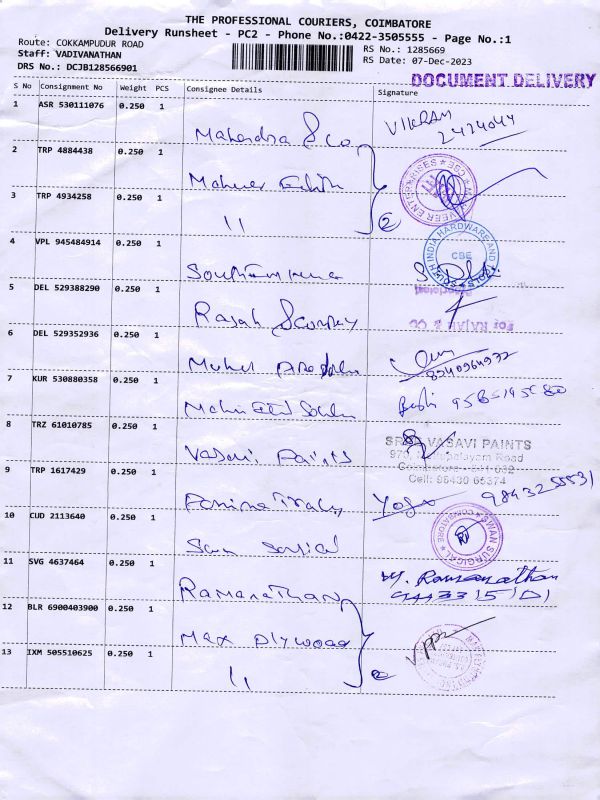 THE PROFESSIONAL COURIERS, COIMBATORE
Delivery Runsheet - PC2 - Phone No.:0422-3505555 - Page No.:1
Route: COKKAMPUDUR ROAD
Staff: VADIVANATHAN
DRS No.: DCJB128566901
RS No.: 1285669
RS Date: 07-Dec-2023
DOCUMENT DELIVERY
S No Consignment No Weight PCS Consignee Details Signature
1 ASR 530111076 0.250 1
Mahendra & Co VIKRAM
2424044
2 TRP 4884438 0.250 1
3 TRP 4934258 0.250 1
" 2
4 VPL 945484914 0.250 1
SOUTH INDIA HARDWARE AND TOOLS
CBE
5 DEL 529388290 0.250 1
Rajah & Company
For RAJAH & CO
6 DEL 529352936 0.250 1
7 KUR 530880358 0.250 1
8 TRZ 61010785 0.250 1
Vasavi Paints
SREE VASAVI PAINTS
Cell: 98430 65374
9 TRP 1617429 0.250 1
Yoga 9843255531
10 CUD 2113640 0.250 1
SWAN SURGICAL
COIMBATORE
11 SVG 4637464 0.250 1
Ramanathan M. Ramanathan
12 BLR 6900403900 0.250 1
Max Plywood
13 IXM 505510625 0.250 1
" 2